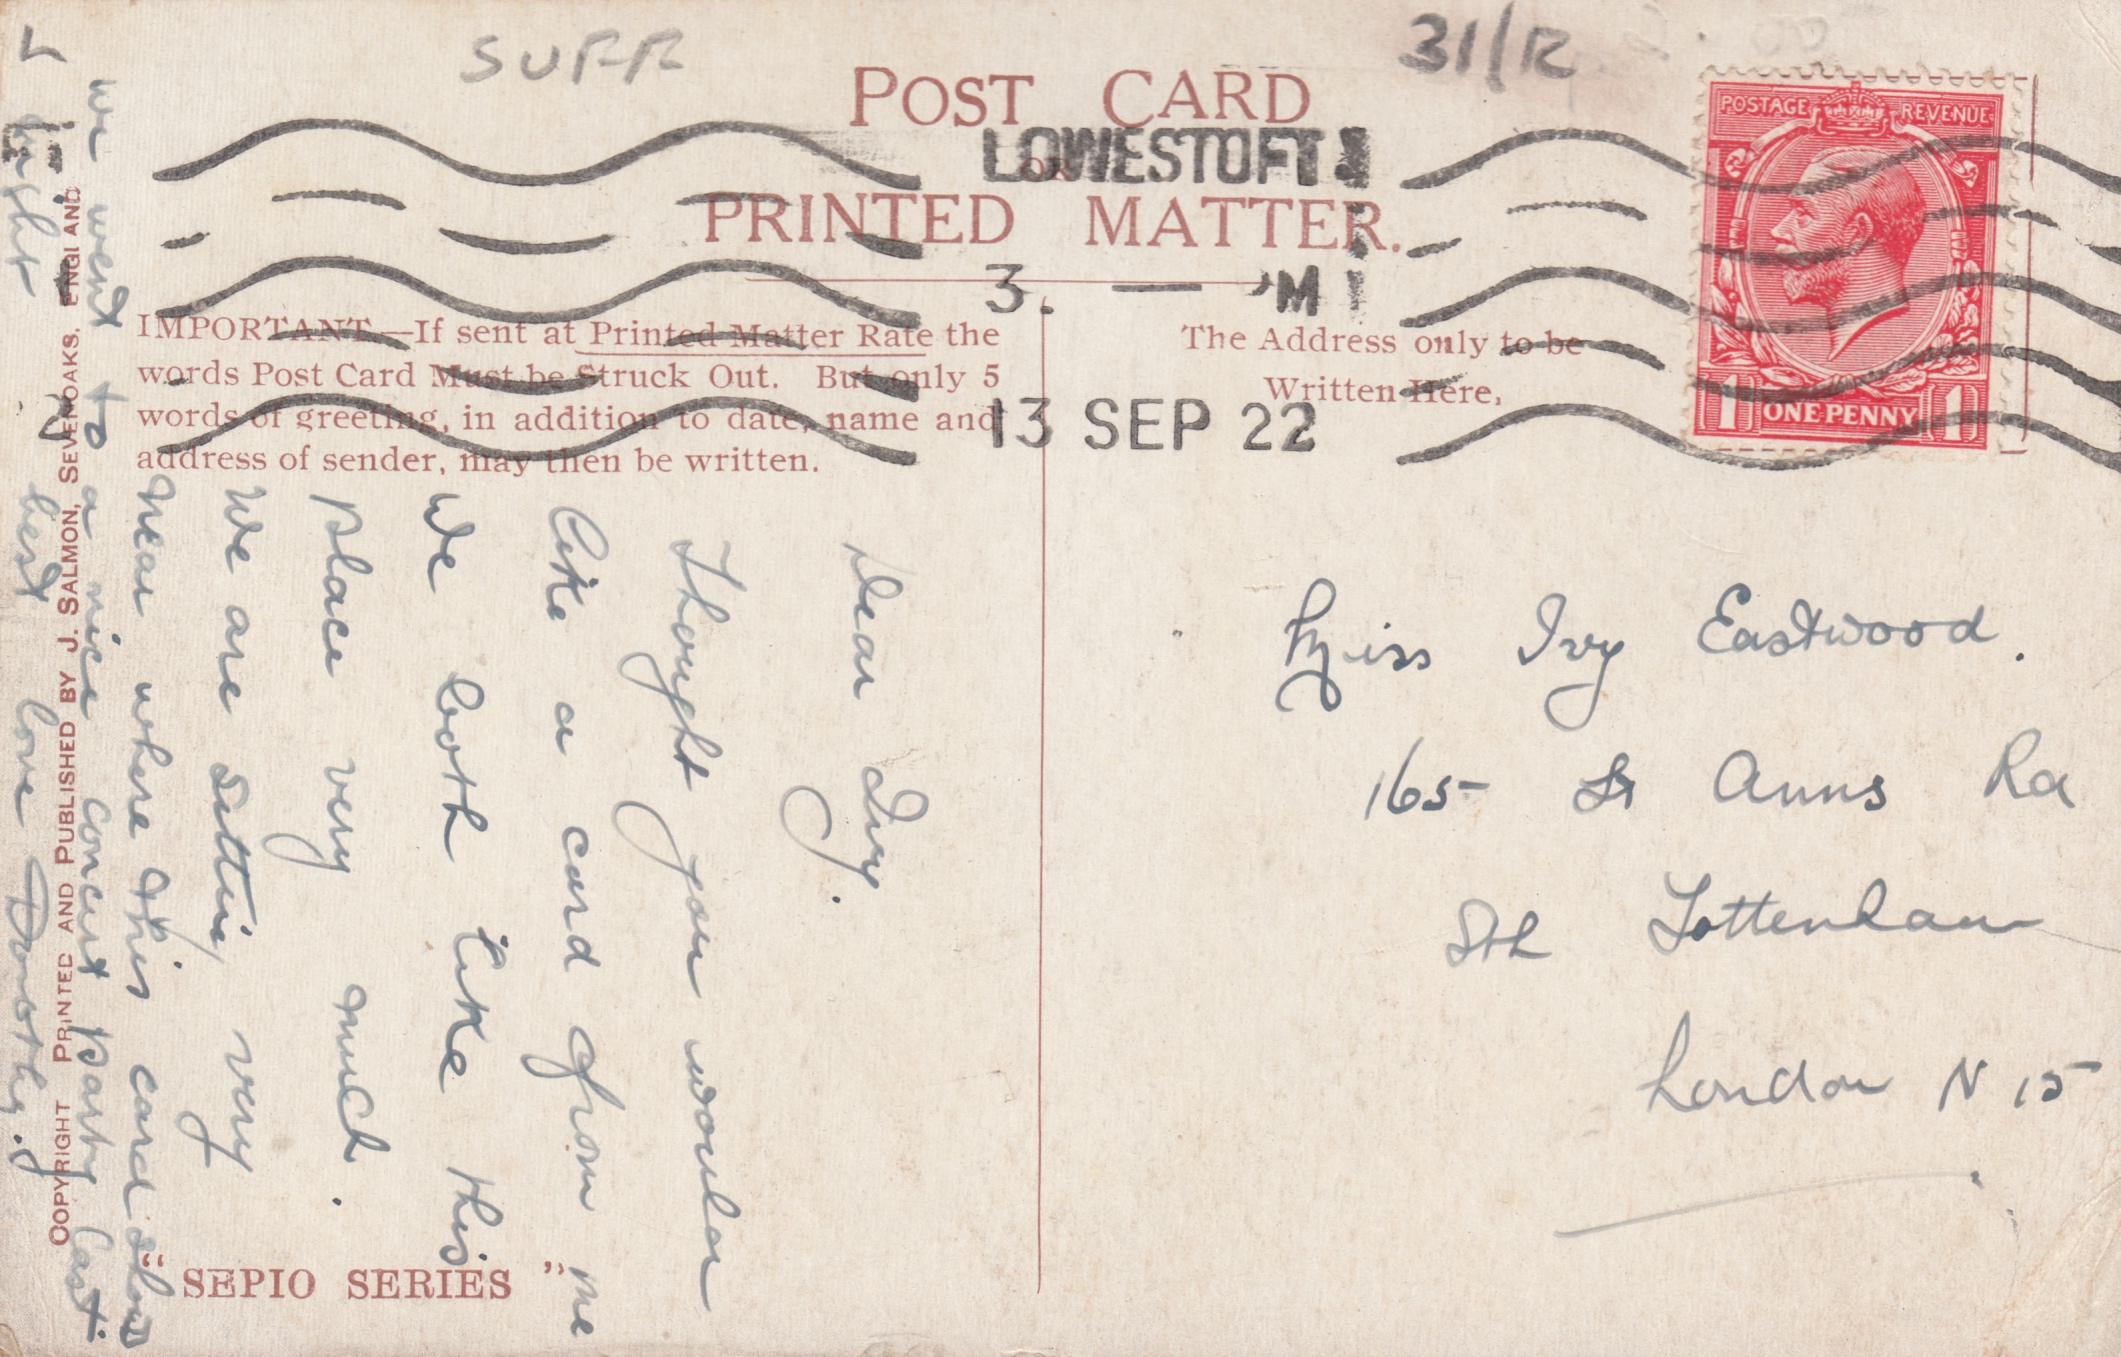 SUFF
31/12
POST CARD
OR
PRINTED MATTER.
LOWESTOFT
3. — PM
13 SEP 22
POSTAGE REVENUE
1 ONE PENNY 1
IMPORTANT.—If sent at Printed Matter Rate the
words Post Card Must be Struck Out. But only 5
words of greeting, in addition to date, name and
address of sender, may then be written.
The Address only to be
Written Here.
Miss Ivy Eastwood.
165 St Anns Rd
Sth Tottenham
London N 15
Dear Ivy.
Thought you would
like a card from me
We both like this
place very much.
We are sitting very
near where this card shows
we went to a nice concert party last
night best love Dorothy.
COPYRIGHT PRINTED AND PUBLISHED BY J. SALMON, SEVENOAKS, ENGLAND
"SEPIO SERIES"